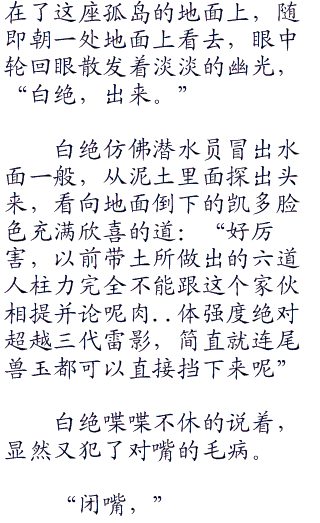 在了这座孤岛的地面上，随
即朝一处地面上看去，眼中
轮回眼散发着淡淡的幽光，
“白绝，出来。”
白绝仿佛潜水员冒出水
面一般，从泥土里面探出头
来，看向地面倒下的凯多脸
色充满欣喜的道：“好厉
害，以前带土所做出的六道
人柱力完全不能跟这个家伙
相提并论呢肉..体强度绝对
超越三代雷影，简直就连尾
兽玉都可以直接挡下来呢”
白绝喋喋不休的说着，
显然又犯了对嘴的毛病。
“闭嘴，”